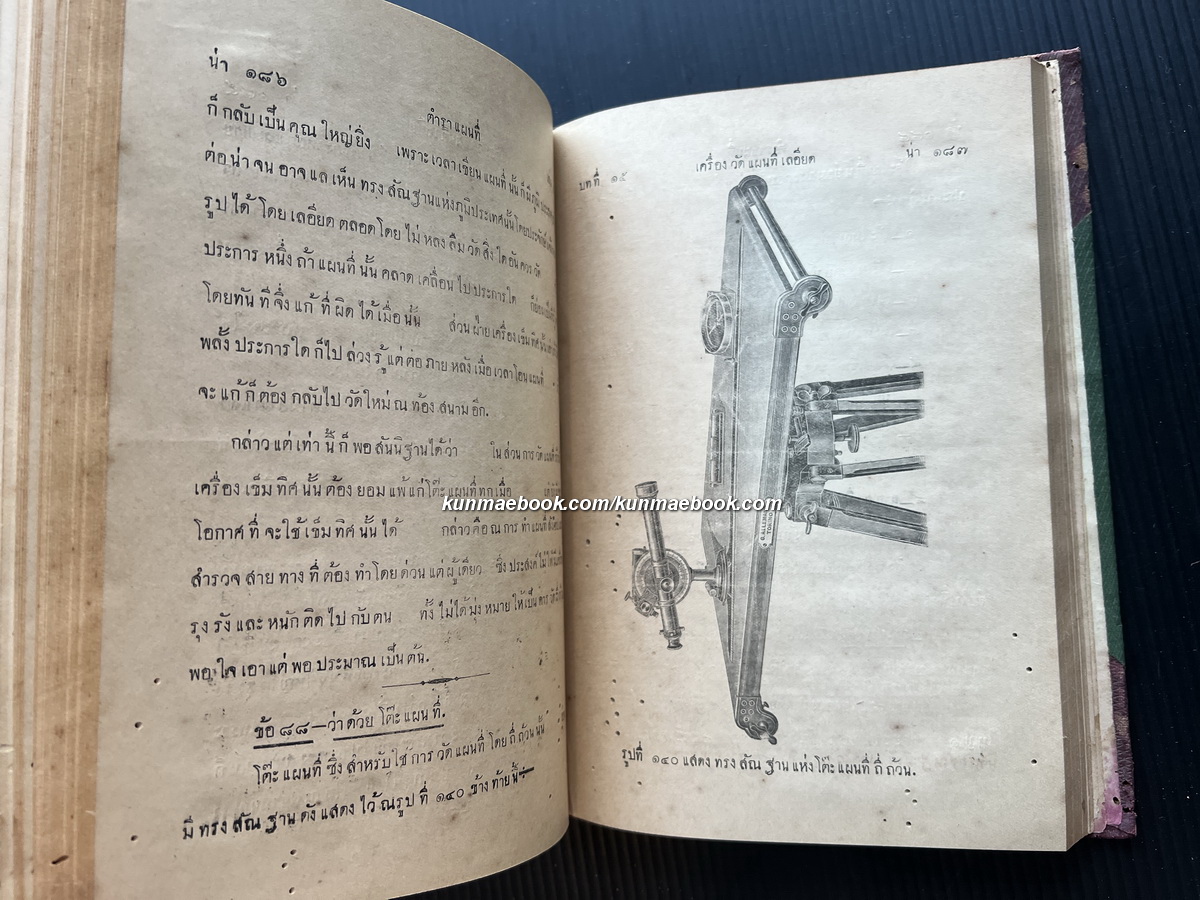 น่า ๑๘๖
ตำราแผนที่
ก็กลับเป็นคุณใหญ่ยิ่ง เพราะเวลาเขียนแผนที่นั้นก็มีภูมิ
ต่อน่าจนอาจแลเห็นทรงสัณฐานแห่งภูมิประเทศนั้นโดย
รูปได้โดยเลอียดตลอดโดยไม่หลงลืมวัดสิ่งใดอันควรวัด
ประการหนึ่งถ้าแผนที่นั้นคลาดเคลื่อนไปประการใด
โดยทันทีจึ่งแก้ที่ผิดได้เมื่อนั้น ส่วนฝ่ายเครื่องเข็มทิศนั้น
พลั้งประการใดก็ไปล่วงรู้แต่ต่อภายหลังเมื่อเวลาโอนแผนที่
จะแก้ก็ต้องกลับไปวัดใหม่ณท้องสนามอิก.
กล่าวแต่เท่านี้ก็พอสันนิฐานได้ว่า ในส่วนการวัด
เครื่องเข็มทิศนั้นต้องยอมแพ้แก่โต๊ะแผนที่ทุกเมื่อ
โอกาศที่จะใช้เข็มทิศนั้นได้ กล่าวคือณการทำแผนที่
สำรวจสายทางที่ต้องทำโดยด่วนแต่ผู้เดียว ซึ่งประสงค์ไม่
รุงรังและหนักติดไปกับตน ทั้งไม่ได้มุ่งหมายให้เป็นการ
พอใจเอาแต่พอประมาณเป็นต้น.
ข้อ ๘๘—ว่าด้วยโต๊ะแผนที่.
โต๊ะแผนที่ซึ่งสำหรับใช้การวัดแผนที่โดยถี่ถ้วนนั้น
มีทรงสัณฐานดังแสดงไว้ณรูปที่ ๑๔๐ ข้างท้ายนี้—
บทที่ ๑๕
เครื่องวัดแผนที่เลอียด
น่า ๑๘๗
รูปที่ ๑๔๐ แสดงทรงสัณฐานแห่งโต๊ะแผนที่ถี่ถ้วน.
kunmaebook.com/kunmaebook.com